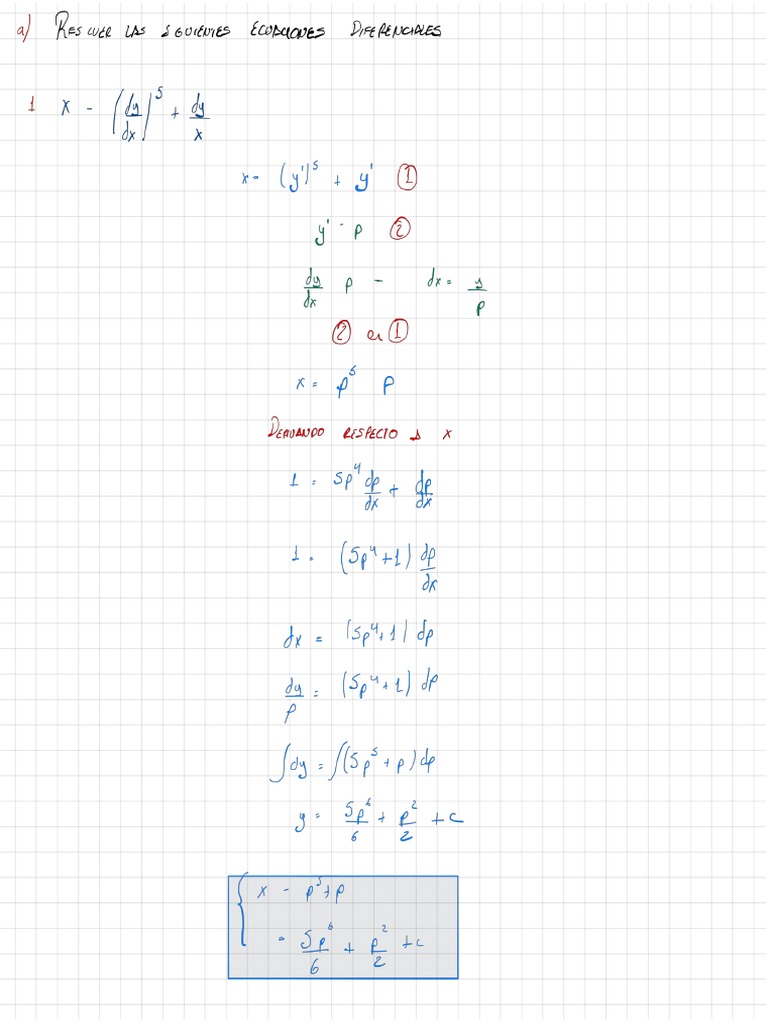 a) RESLVER LAS SIGUIENTES ECUACIONES DIFERENCIALES
1 x - (dy/dx)^5 + dy/x
x - (y')^5 + y' ①
y' - p ②
dy/dx p - dx = y/p
② en ①
x = p^5 p
DERIVANDO RESPECTO A x
1 = 5p^4 dp/dx + dp/dx
1 - (5p^4+1) dp/dx
dx = (5p^4+1) dp
dy/p = (5p^4+1) dp
∫dy = ∫(5p^5+p) dp
y = 5p^6/6 + p^2/2 + c
{ x - p^5+p
= 5p^6/6 + p^2/2 + c